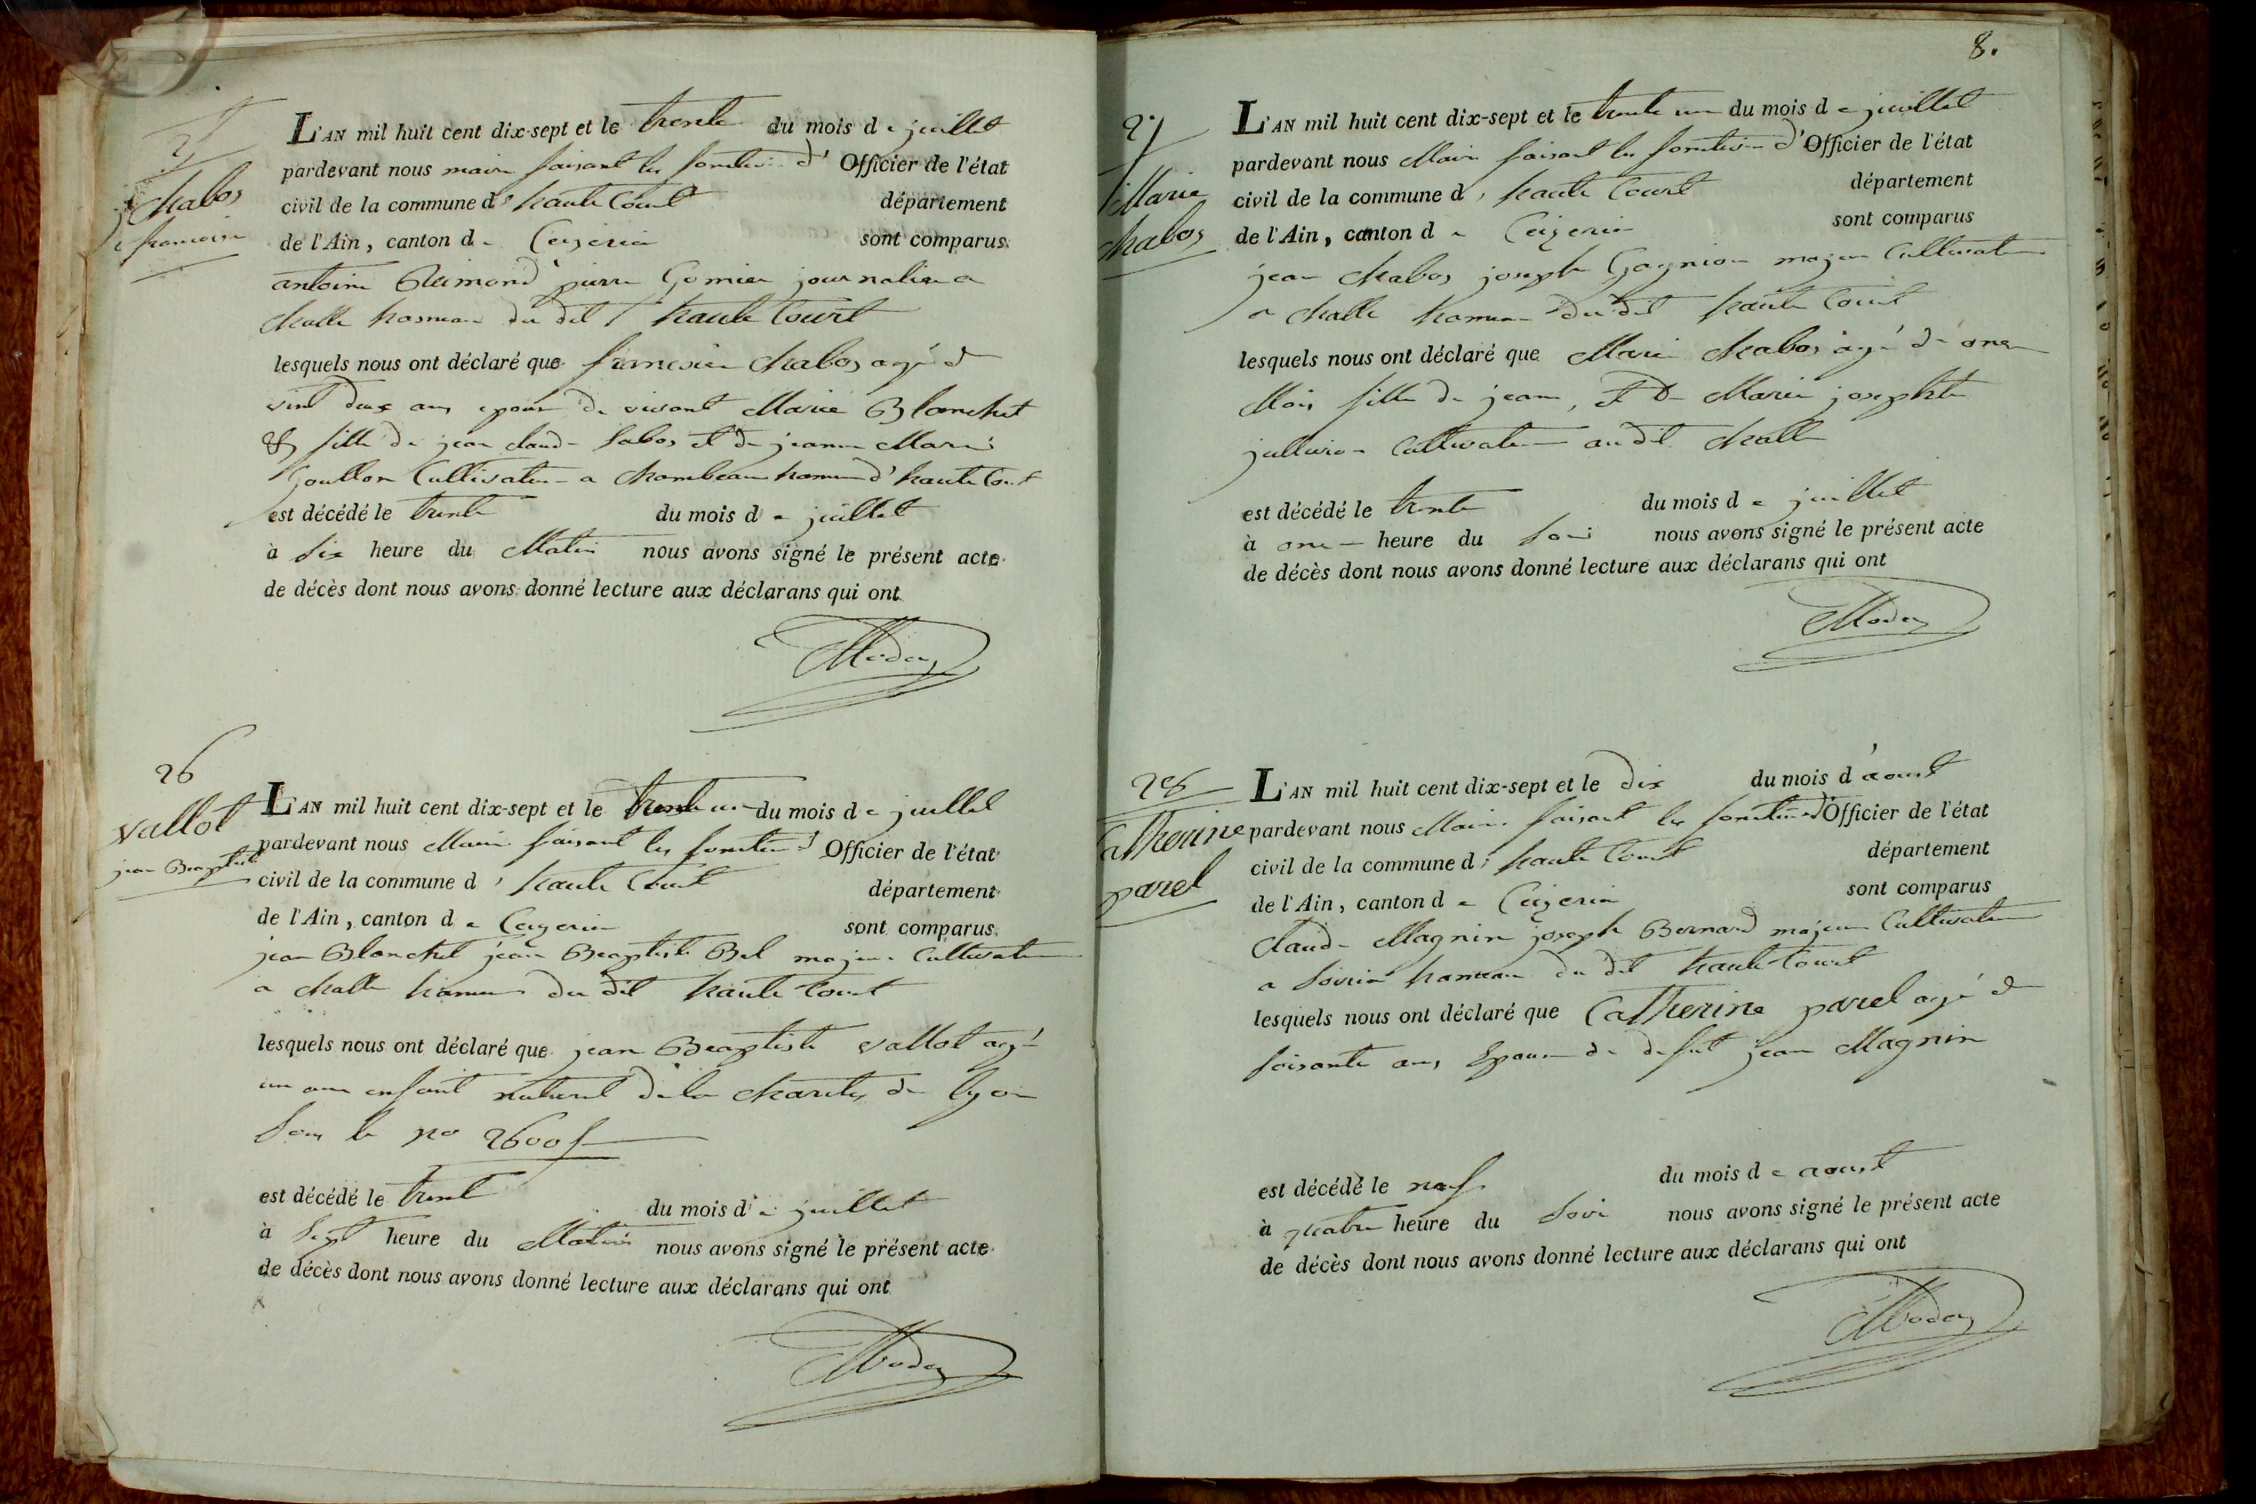 chabos
francoise
L'AN mil huit cent dix-sept et le trente du mois de juillet
pardevant nous maire faisant les fonction d'Officier de l'état
civil de la commune d'haute Court département
de l'Ain, canton de Ceizeria sont comparus
antoine Reimond pierre Gomier journalier a
challe hameau du dit haute Court
lesquels nous ont déclaré que francoise chabos agé de
vint deux ans epouse de vivant Marie Blanchet
& fille de jean claude Sabos et de jeanne Marie
Goullon Cultivateur a Chambeau hameau d'haute Court
est décédé le trente du mois de juillet
à Six heure du Matin nous avons signé le présent acte
de décès dont nous avons donné lecture aux déclarans qui ont
26
vallot
jean Beaptiste
L'AN mil huit cent dix-sept et le trente un du mois de juillet
pardevant nous Maire faisant les fonction d'Officier de l'état
civil de la commune d'haute Court département
de l'Ain, canton de Ceyzeria sont comparus
jean Blanchet jean Beaptiste Bel majeur Cultivateur
a challe hameau du dit haute Court
lesquels nous ont déclaré que jean Beaptiste vallot agé
un ans enfant naturel de la charité de lyon
Sous le no
est décédé le trente du mois de juillet
à Sept heure du Matin nous avons signé le présent acte
de décès dont nous avons donné lecture aux déclarans qui ont
8.
27
Marie
chabos
L'AN mil huit cent dix-sept et le trente un du mois de juillet
pardevant nous Maire faisant les fonction d'Officier de l'état
civil de la commune d'haute Court département
de l'Ain, canton de Ceizeria sont comparus
jean chabos joseph Gagnion majeur Cultivateur
a challe hameau du dit haute Court
lesquels nous ont déclaré que Marie chabos agé de onze
Mois fille de jean, et de Marie josephte
cultivateur audit challe
est décédé le trente du mois de juillet
à onze heure du Soir nous avons signé le présent acte
de décès dont nous avons donné lecture aux déclarans qui ont
28
Catherine
parel
L'AN mil huit cent dix-sept et le dix du mois d'aoust
pardevant nous Maire faisant les fonction d'Officier de l'état
civil de la commune d'haute Court département
de l'Ain, canton de Ceizeria sont comparus
Claude Magnin joseph Bernard majeur Cultivateur
a Soiria hameau du dit haute Court
lesquels nous ont déclaré que Catherine parel agé de
soisante ans Epouse de defut jean Magnin
est décédé le nef du mois de aoust
à quatre heure du Soir nous avons signé le présent acte
de décès dont nous avons donné lecture aux déclarans qui ont